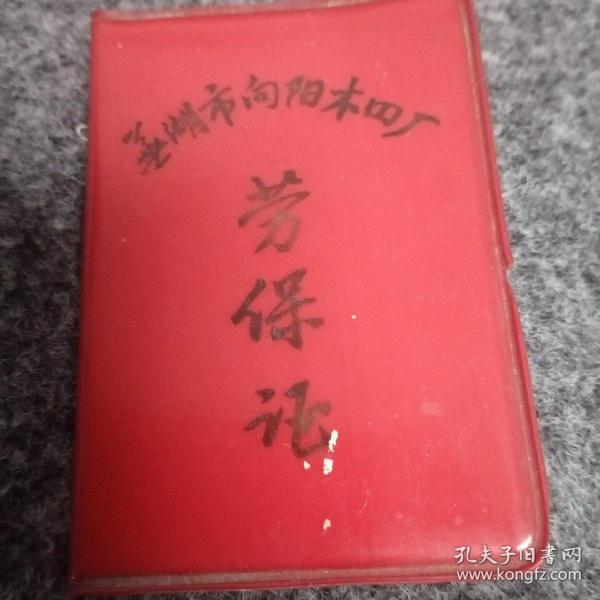 芜湖市向阳木四厂
劳
保
证
孔夫子旧書网
www.kongfz.com